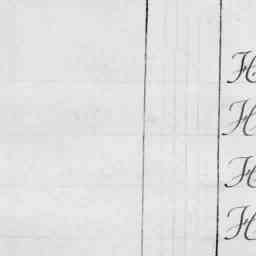 H
H
H
H